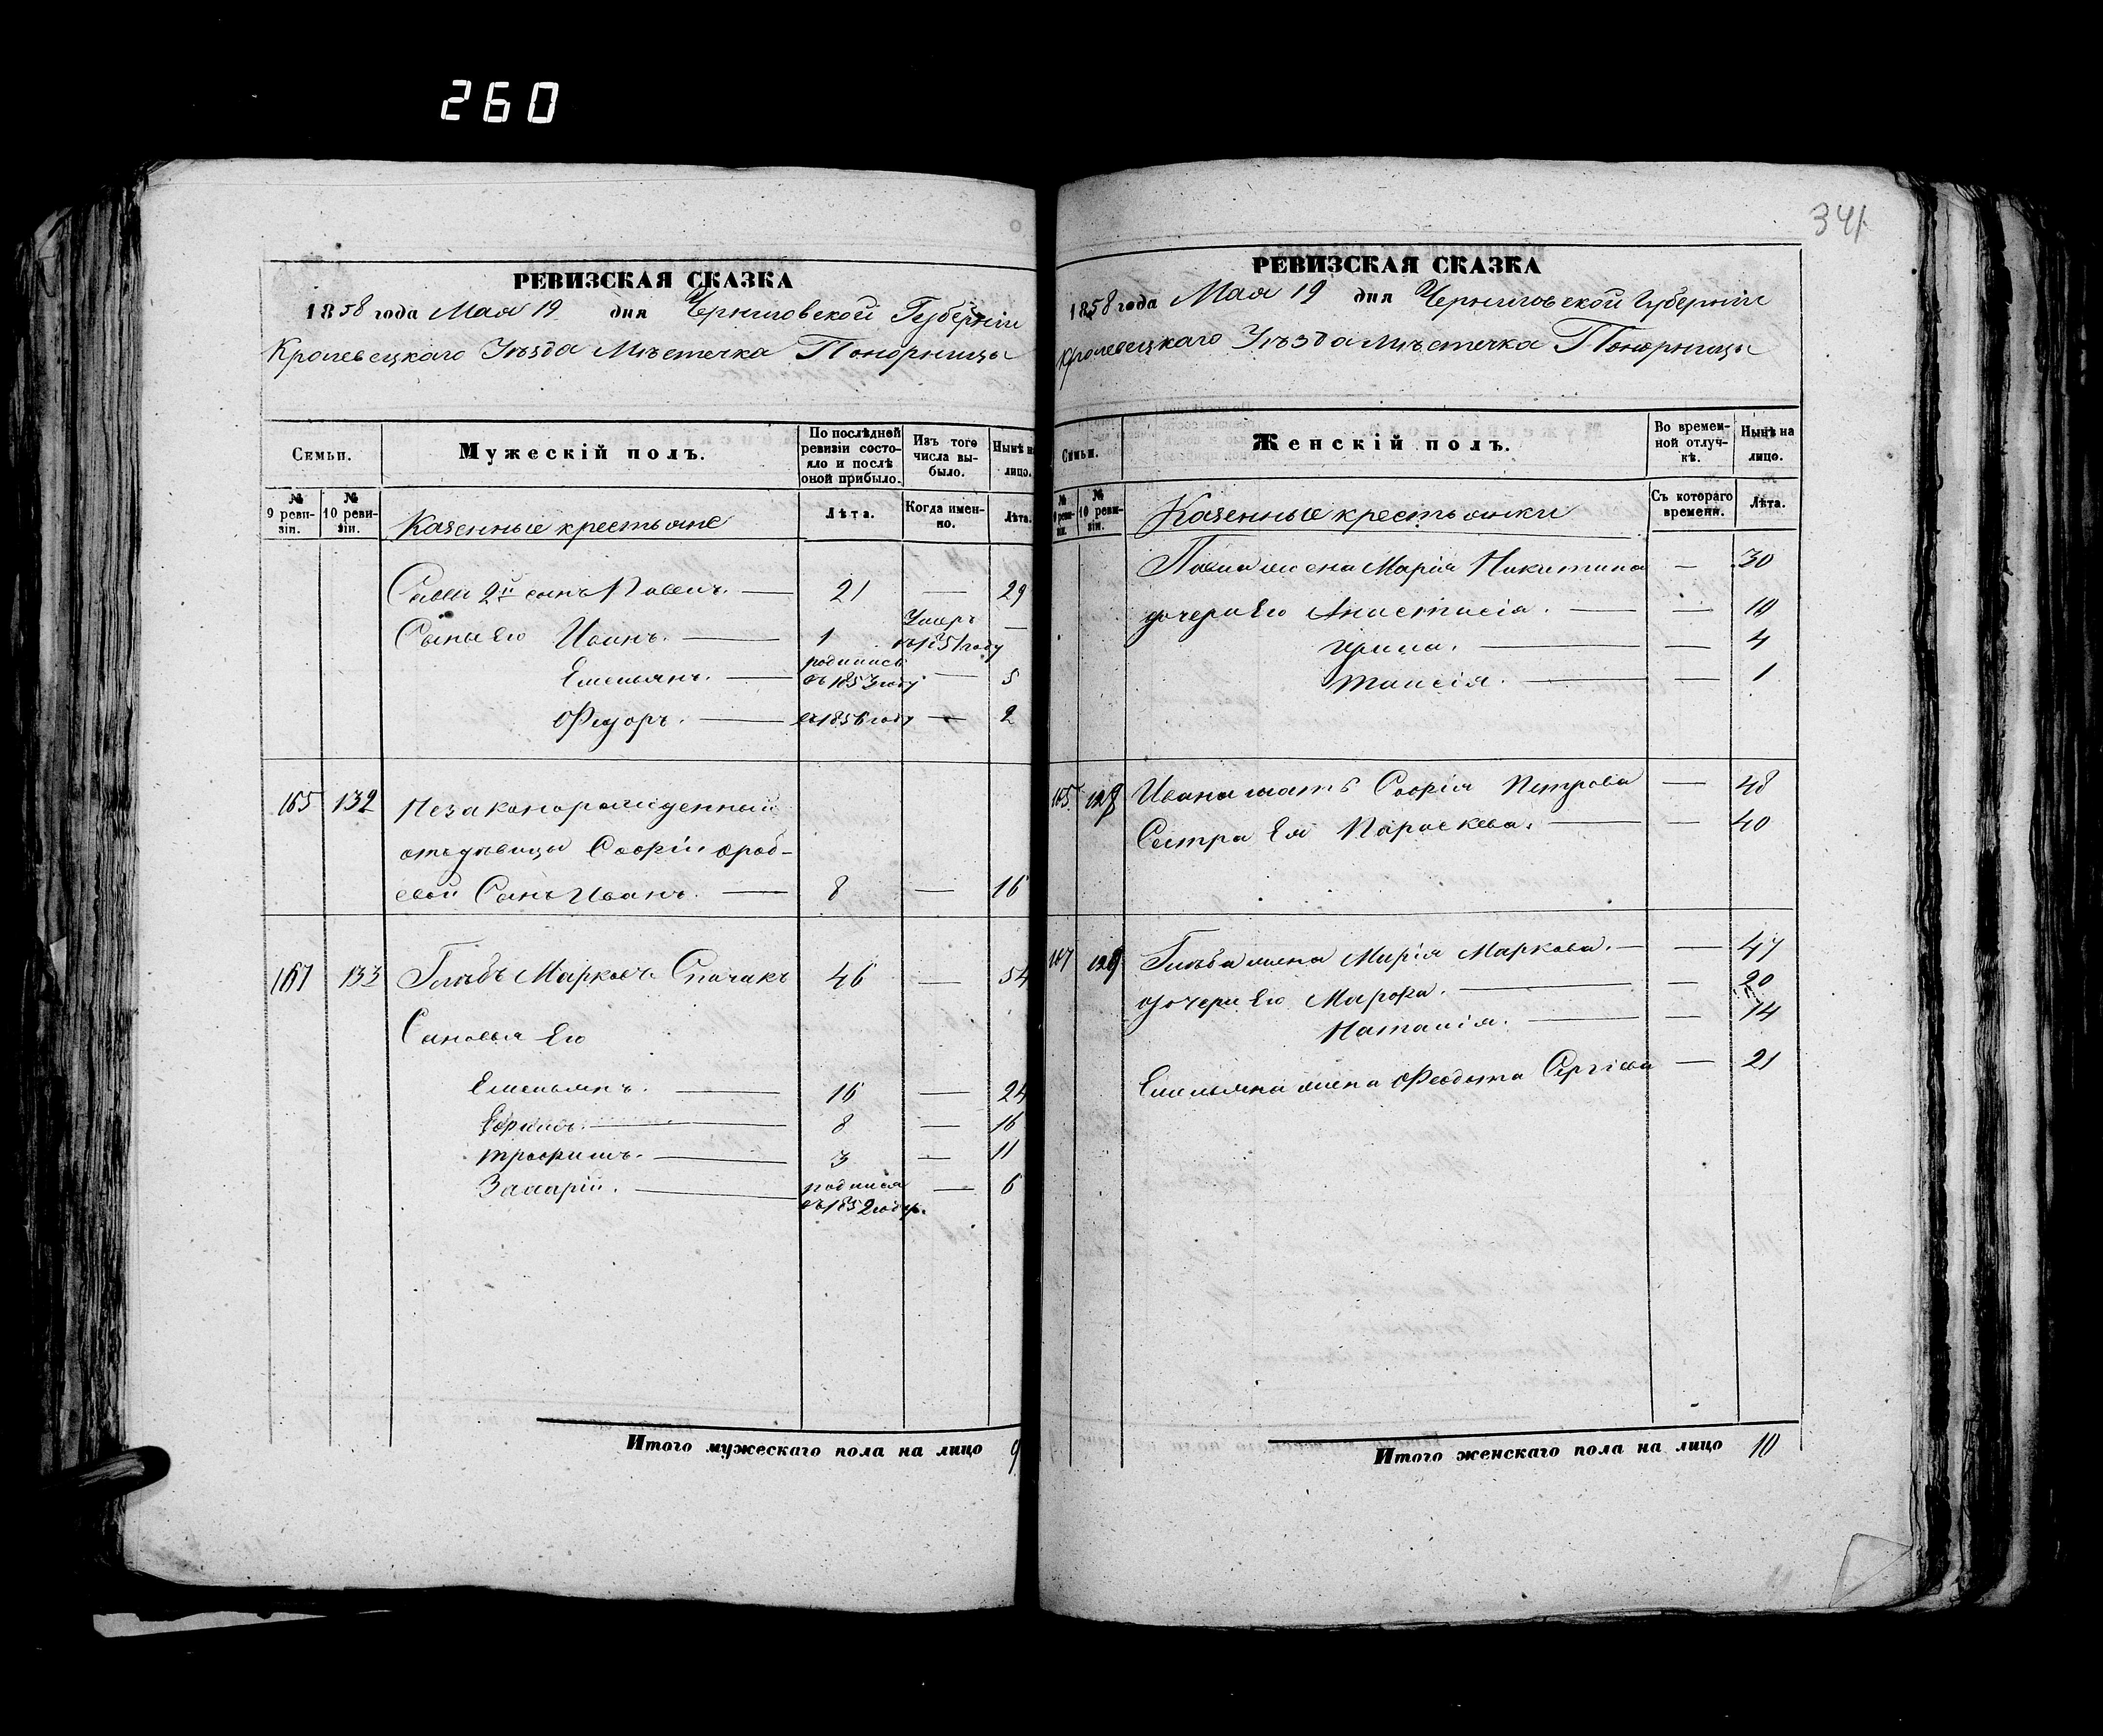 260
341
РЕВИЗСКАЯ СКАЗКА
1858 года Мая 19 дня Черниговской Губерніи
Кролевецкаго Уѣзда Мѣстечка Понорницы
Семьи.
Мужескій полъ.
По послѣдней ревизіи состояло и послѣ оной прибыло.
Изъ того числа выбыло.
Нынѣ на лицо.
№ 9 ревизіи.
№ 10 ревизіи.
Казенные крестьяне
Лѣта.
Когда именно.
Лѣта.
Саввы 2й сынъ Павелъ. — 21 — 29
Сыны Его Иванъ. — 1 Умеръ въ 1851 году —
Емельянъ. — родился въ 1853 году — 5
Федоръ. — въ 1856 году — 2
165 132 Незаконорожденный
отъ дѣвицы Софіи
сынъ Иванъ. — 8 — 16
167 133 Глѣбъ Марковъ Спачакъ 46 — 54
Сыновья Его
Емельянъ. — 16 — 24
Ефимъ. — 8 — 16
Трофимъ. — 3 — 11
Захарій. — родился въ 1852 году. — 6
Итого мужескаго пола на лицо 9
РЕВИЗСКАЯ СКАЗКА
1858 года Мая 19 дня Черниговской Губерніи
Кролевецкаго Уѣзда Мѣстечка Понорницы
Семьи.
Женскій полъ.
Во временной отлучкѣ.
Нынѣ на лицо.
№ 9 ревизіи.
№ 10 ревизіи.
Казенные крестьянки
Съ котораго времени.
Лѣта.
Павла жена Марія Никитина — 30
дочери Его Анастасія. — — 10
Ирина. — — 4
Таисія. — — 1
165 128 Ивана мать Софія Петрова — 48
Сестра Ея Параскева. — — 40
167 129 Глѣба жена Марія Маркова. — — 47
дочери Его Марфа. — — 20
Наталія. — — 14
Емельяна жена Феодота Сергіева — 21
Итого женскаго пола на лицо 10